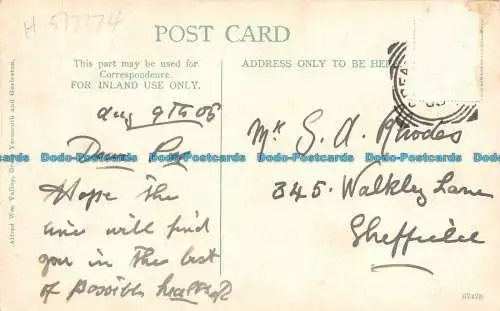 H 517774
POST CARD
This part may be used for
Correspondence.
FOR INLAND USE ONLY.
ADDRESS ONLY TO BE HERE
Aug 9th 05
Dear
Hope the
one will find
you in the best
of possible health
Mr G. A. Rhodes
345. Walkley Lane
Sheffield
Dodo-Postcards Dodo-Postcards Dodo-Postcards Dodo-Postcards Dodo-Postcards Dodo-Postcards
Alfred Wm Yallop, Yarmouth and Gorleston.
67478